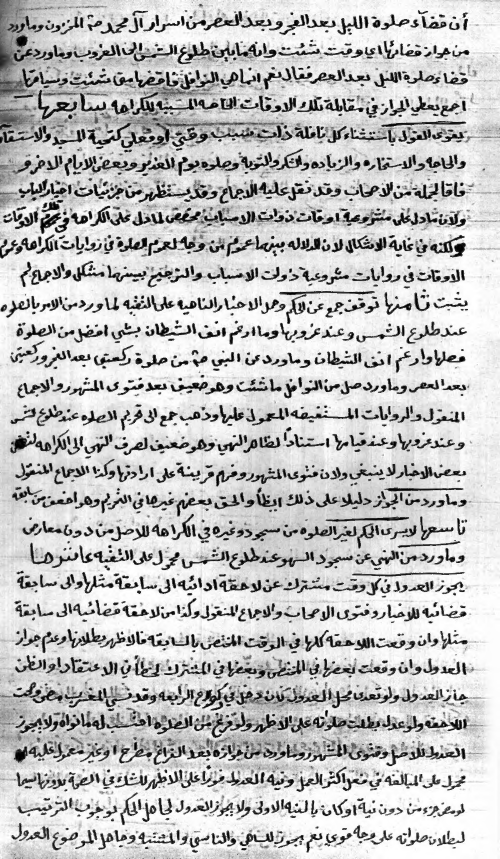 أن قضاء صلوة الليل بعد الفجر وبعد العصر من اسرار آل محمد ص المخزون وماورد
من جواز قضائها اي وقت شئت وانه مابين طلوع الشمس الى الغروب وماورد عن
قضاء صلوة الليل بعد العصر فقال نعم انما هي النوافل فاقضها متى شئت وسياقها
اجمع يعطي الجواز في مقابلة تلك الاوقات الخاصه المبينه للكراهه سابعها
يقوى القول باستثناء كل نافلة ذات سبب وقتي او فعلي كتحية المسجد والاستسقاء
والحاجه والاستخاره والزياره والشكر والتوبة وصلوه يوم الغدير وبعض الايام الاخر
فاقا لجملة من الاصحاب وقد نقل عليه الاجماع وقد يستظهر من جزئيات اخبار الباب
ولان مادل على مشروعية اوقات ذوات الاسباب مخصص لمادل على الكراهه في تلك الاوقات
ولكنه في غاية الاشكال لان الدلاله بينهما عموم من وجه لعموم الصلوة في روايات الكراهه وعموم
الاوقات في روايات مشروعية ذوات الاسباب والترجيح بينهما مشكل والاجماع لم
يثبت ثامنها توقف جمع عن الحكم وحمل الاخبار الناهيه على التقيه لما ورد من الامر بالصلوه
عند طلوع الشمس وعند غروبها وما ارغم انف الشيطان بشي افضل من الصلوة
فصلها وارغم انف الشيطان وماورد عن النبي ص من صلوة ركعتي بعد الفجر وركعتين
بعد العصر وماورد صل من النوافل ماشئت وهو ضعيف بعد فتوى المشهور والاجماع
المنقول والروايات المستفيضه المعمول عليها وذهب جمع الى تحريم الصلوه عند طلوع الشمس
وعند غروبها وعند قيامها استنادا لظاهر النهي وهو ضعيف لصرف النهي الى الكراهه
بعض الاخبار لا ينبغي ولان فتوى المشهور وفهم قرينة على ارادتها وكذا الاجماع المنقول
وماورد من الجواز دليلا على ذلك ايضا والحق بعضهم غيرها في التحريم وهو اضعف من سابقه
تاسعها لا يسري الحكم لغير الصلوه من سجود وغيره في الكراهه للاصل من دون معارض
وماورد من النهي عن سجود السهو عند طلوع الشمس محمول على التقيه عاشرها
يجوز العدول في كل وقت مشترك عن لاحقة ادائية الى سابقة مثلها والى سابقة
قضائية للاخبار وفتوى الاصحاب والاجماع المنقول وكذا من لاحقة قضائيه الى سابقة
مثلها وان وقعت اللاحقة كلها في الوقت المختص بالسابقة فالاظهر بطلانها وعدم جواز
العدول وان وقعت بعضها في المختص وبعضها في المشترك لخطأ في الاعتقاد او الظن
جاز العدول ولو تعدى محل العدول كان دخل في ركوع الرابعه وقد نسي المغرب مضى وصحت
اللاحقه ولو عدل بطلت صلوته على الاظهر ولو فرغ من الصلوه احتسب له مانواه ولا يجوز
العدول للاصل وفتوى المشهور وماورد من جوازه بعد الفراغ مطرح او غير معول عليه
محمول على المبالغه في فعل اكثر العمل ونية العدول فورا على الاظهر للشك في الصحة بدونها سيما
لو مضى جزء من دون نية او كان بالنية الاولى ولا يجوز العدول لجاهل الحكم بوجوب الترتيب
لبطلان صلوته على وجه قوي نعم يجوز للساهي والناسي والمشتبه وجاهل الموضوع العدول